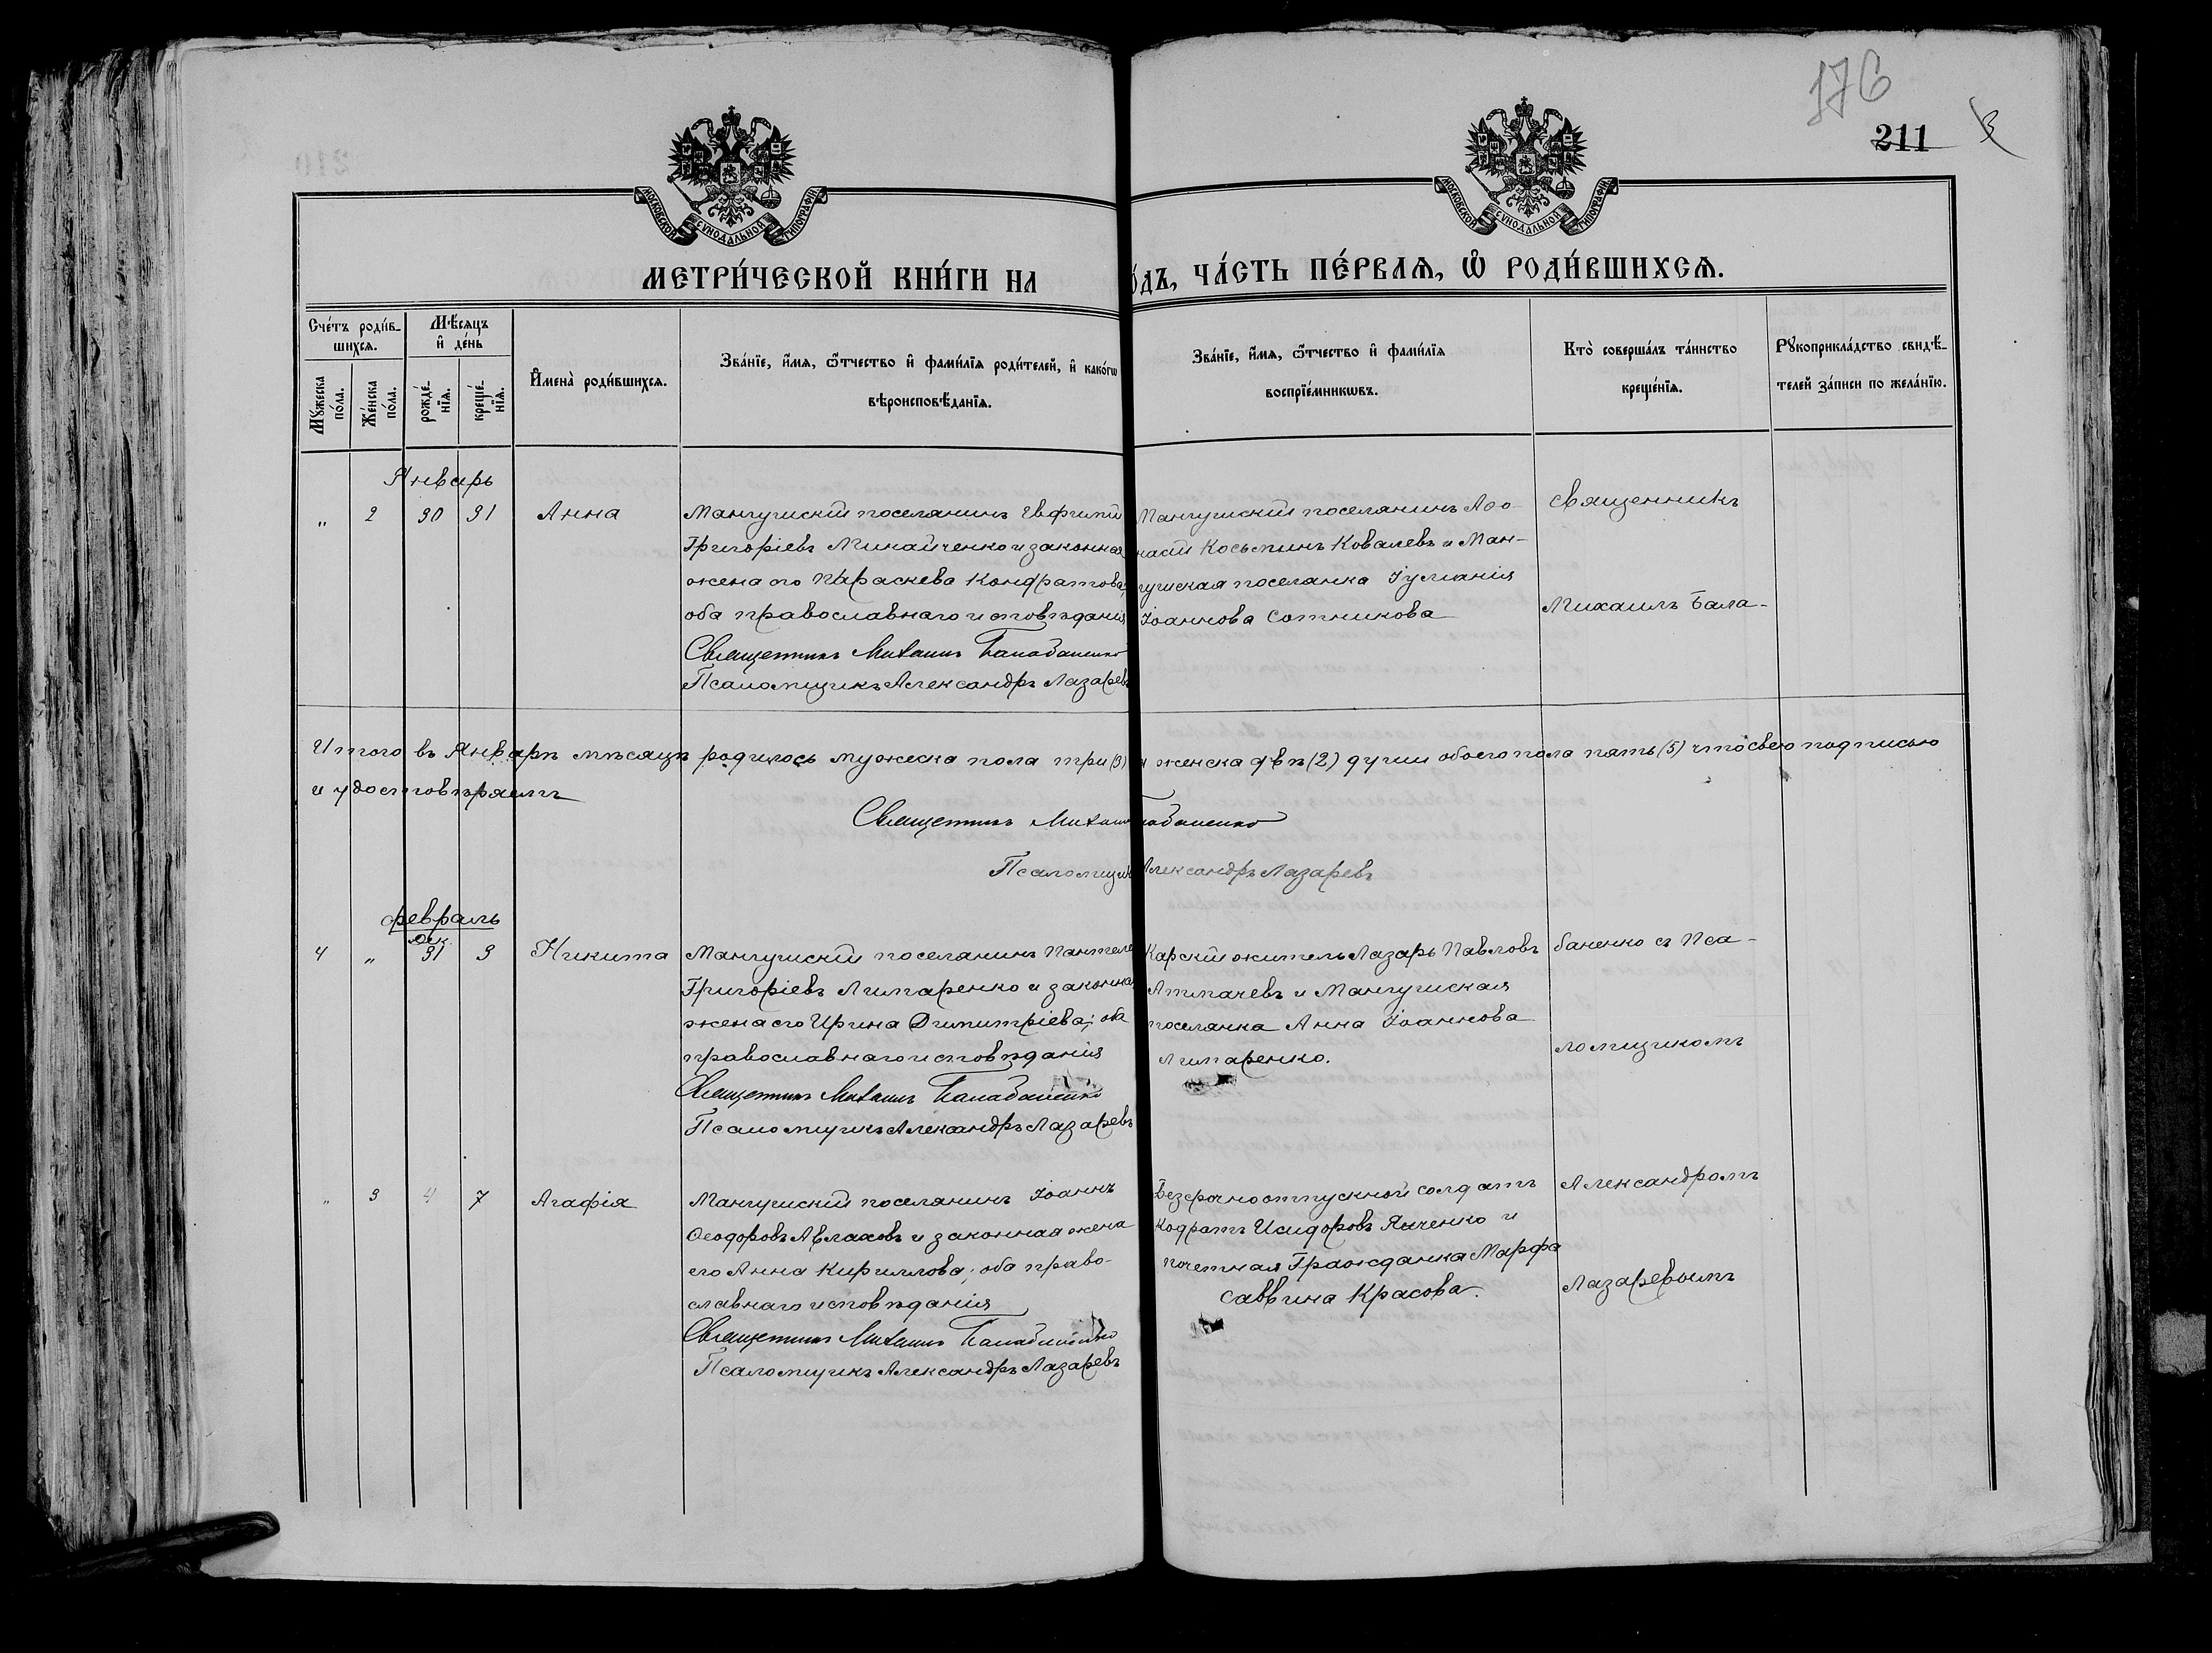 176
211
3
МОСКОВСКОЙ СѴНОДАЛЬНОЙ ТИПОГРАФІИ
МОСКОВСКОЙ СѴНОДАЛЬНОЙ ТИПОГРАФІИ
МЕТРИ́ЧЕСКОЙ КНИ́ГИ НА
О́ДЪ, ЧА́СТЬ ПЕ́РВАЯ, Ѿ РОДИ́ВШИХСЯ.
Сче́тъ роди́в-
шихся.
Мꙋжеска
по́ла.
Же́нска
по́ла.
Мѣ́сяцъ
и҆ де́нь
рожде́-
нїя.
креще́-
нїя.
И҆мена̀ роди́вшихся.
Зва́нїе, и҆́мя, ѻ҆́тчество и҆ фами́лїя роди́телей, и҆ како́гѡ
вѣроисповѣ́данїя.
Зва́нїе, и҆́мя, ѻ҆́тчество и҆ фами́лїя
воспрїе́мникѡвъ.
Кто̀ соверша́лъ та́инство
креще́нїя.
Рꙋкоприкла́дство свидѣ́-
телей за́писи по жела́нїю.
Январь
„ 2 30 31 Анна
Мангушскій поселянинъ Евфимій
Григоріевъ Михайченко и законная
жена его Параскева Кондратова,
оба православнаго исповѣданія
Священникъ Михаилъ Балабаненко
Псаломщикъ Александръ Лазаревъ
Мангушскій поселянинъ Аѳо-
насій Косьминъ Ковалевъ и Ман-
гушская поселянка Іуліанія
Іоаннова Сотникова
Священникъ
Михаилъ Бала-
Итого въ Январѣ мѣсяцѣ родилось мужеска пола три (3) и женска двѣ (2) души обоего пола пять (5) что свею подписью
и удостовѣряемъ
Священникъ Михаилъ Балабаненко
Псаломщикъ Александръ Лазаревъ
Февраль
Дек.
4 „ 31 3 Никита
Мангушскій поселянинъ Пантеле
Григоріевъ Лимаренко и законная
жена его Ирина Димитріева; оба
православнаго исповѣданія
Священникъ Михаилъ Балабаненко
Псаломщикъ Александръ Лазаревъ
Карскій житель Лазарь Павловъ
Атмачевъ и Мангушская
поселянка Анна Іоаннова
Лимаренко.
баненко съ Пса-
ломщикомъ
„ 3 4 7 Агафія
Мангушскій поселянинъ Іоаннъ
Ѳеодоровъ Авлаховъ и законная жена
его Анна Кириллова; оба право-
славнаго исповѣданія
Священникъ Михаилъ Балабаненко
Псаломщикъ Александръ Лазаревъ
Безсрочноотпускной солдатъ
Кодратъ Исидоровъ Яличенко и
почетная Гражданка Марфа
Саввина Красова.
Александромъ
Лазаревымъ